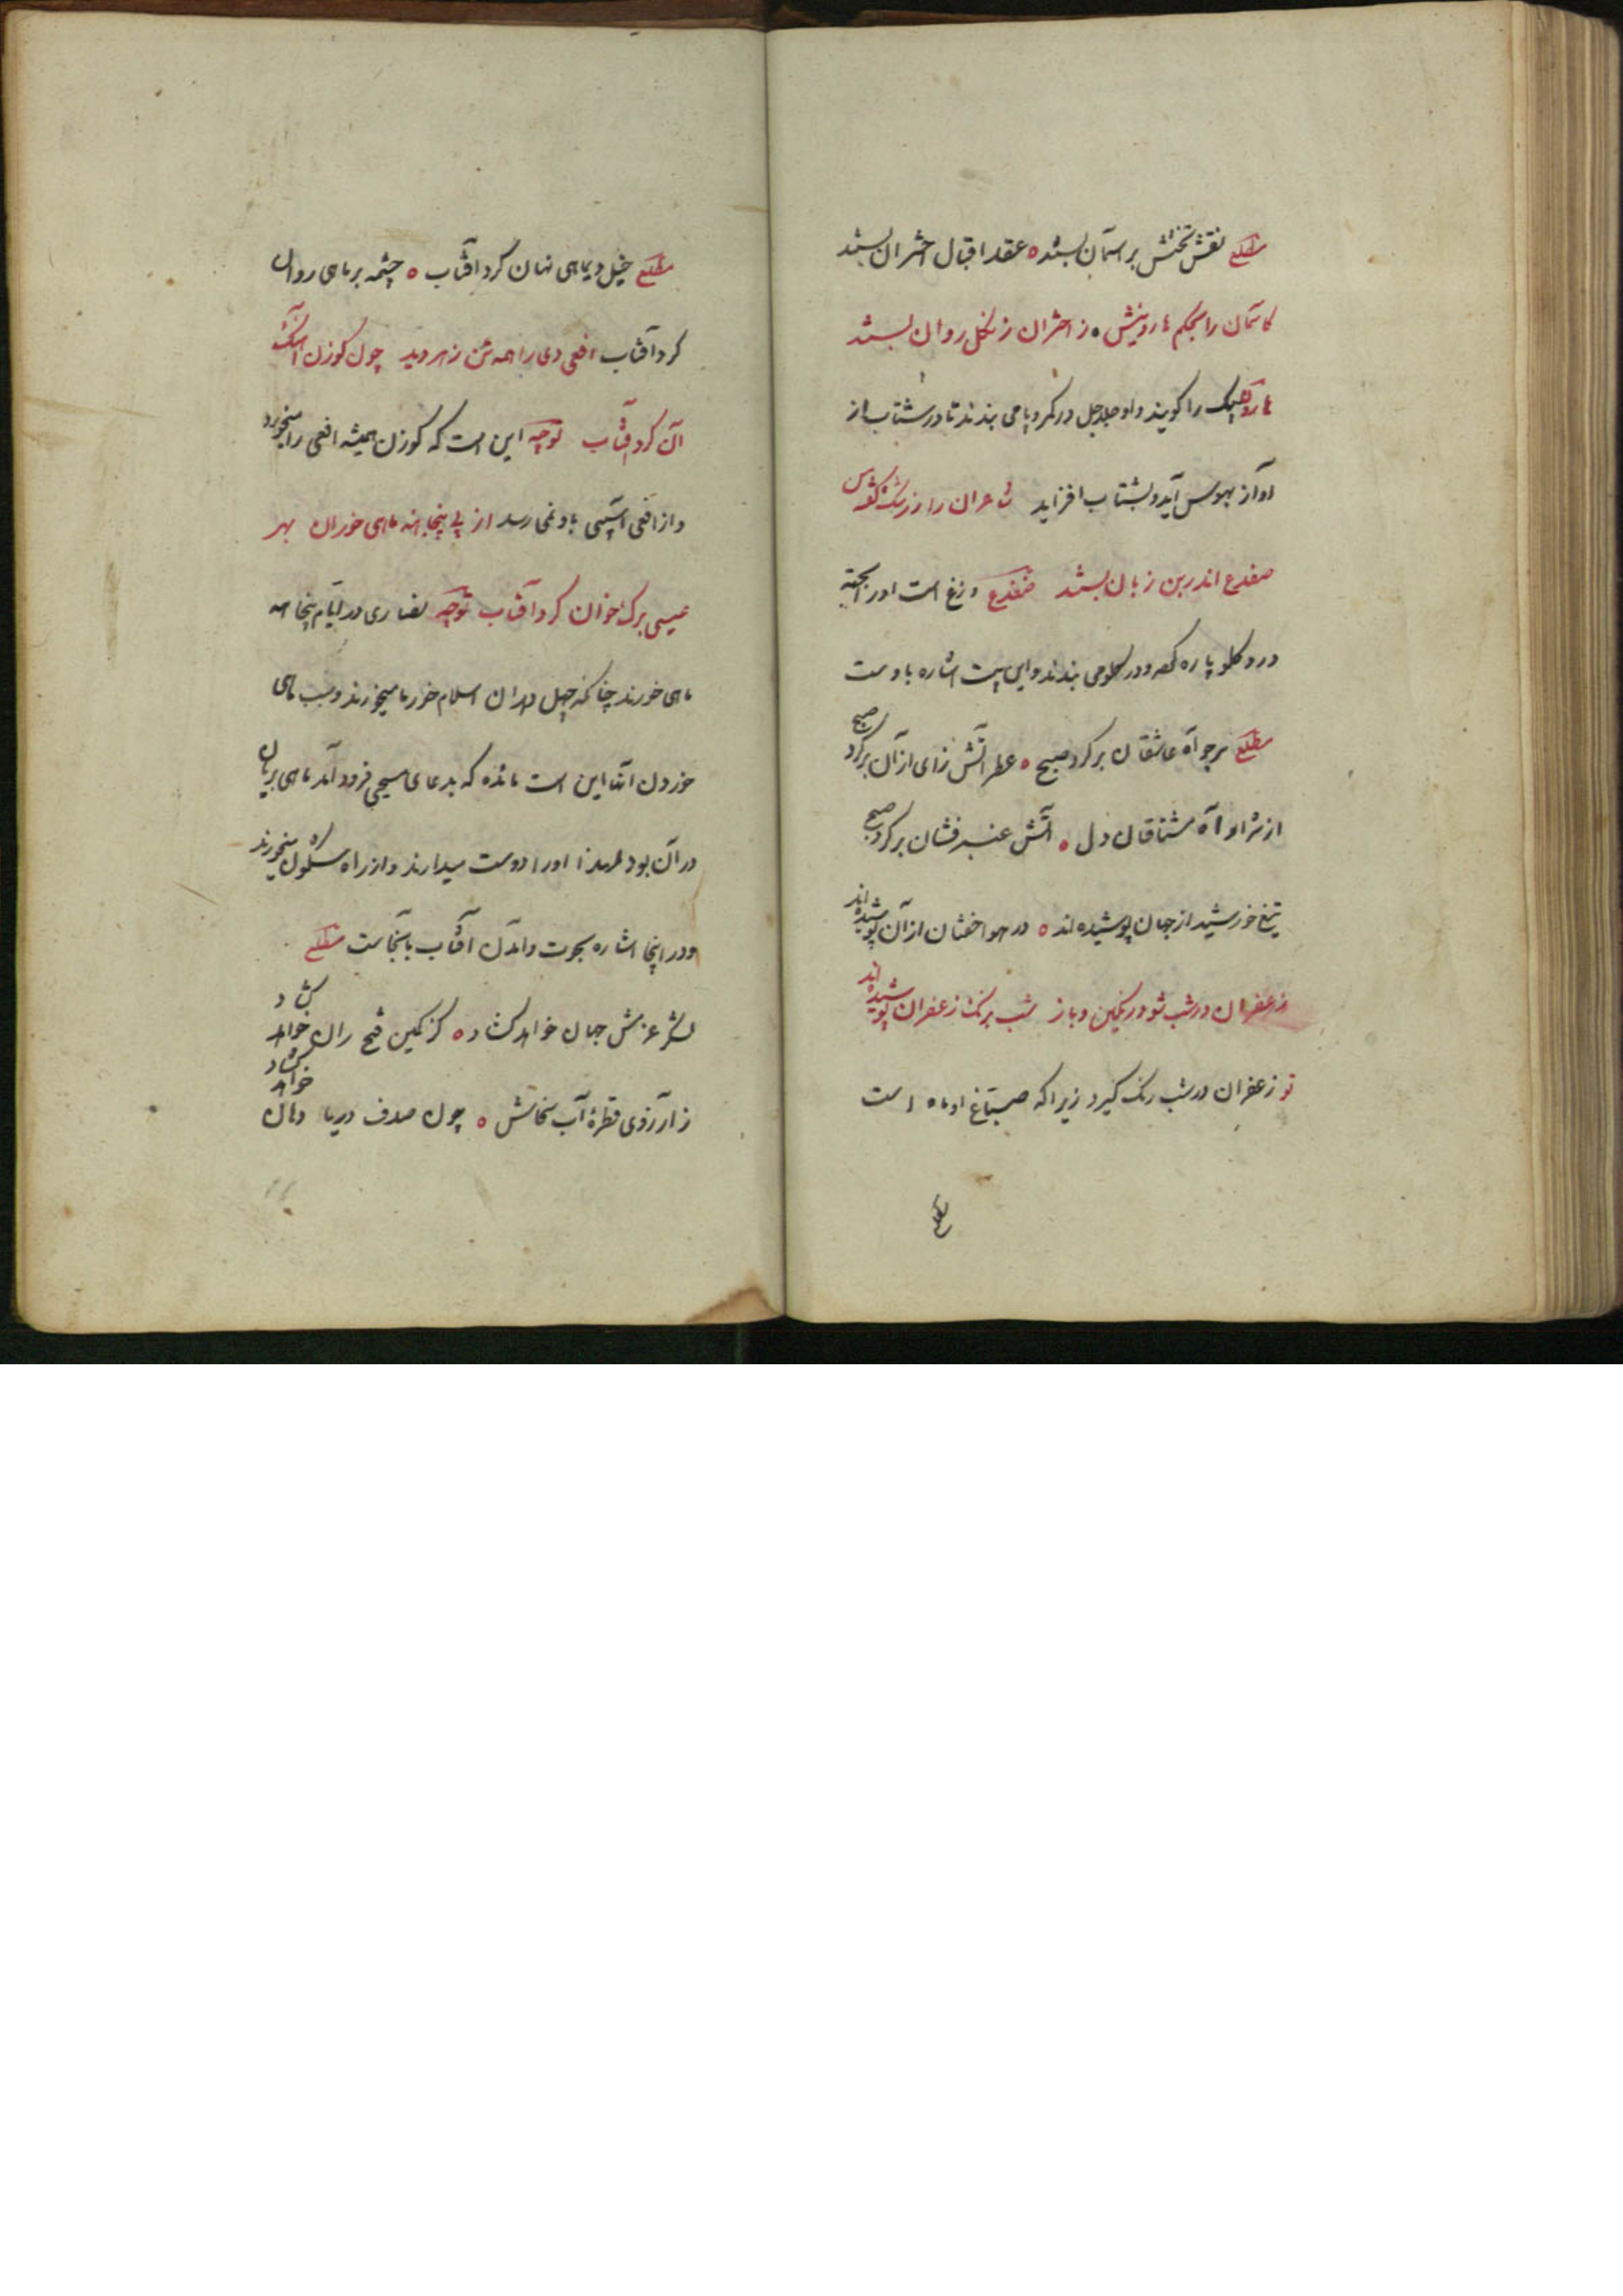 مطلع نقش تختش بر آسمان بستند عقد اقبال اختران بستند
کاسمان را بحکم هارونیش ز اختران زنگل روان بستند
هارون پیک را گویند و او جلاجل در کمر و پا می بندند تا در شتاب از
آواز بهوس آید و بشتاب افزاید شاعران را ز رشک گفته من
ضفدع اندر بن زبان بستند ضفدع وزغ است او را پخته
در دو گلو پاره کرده در گلو می بندند و این بیت اشاره باوست
مطلع سر چو آه عاشقان بر کرد صبح عطر آتش زای از آن بر کرد صبح
از شرار آه مشتاقان دل آتش عنبر فشان بر کرد صبح
تیغ خورشید از جهان پوشیده اند در هوا خفتان از آن پوشیده اند
زعفران در شب شود رنگین و باز شب برنگ زعفران پوشیده اند
تو زعفران در شب رنگ گیرد زیرا که صباغ او ماه است
مطلع خیل دیماهی نهان کرد آفتاب چشمه بر ماهی روان
کرد آفتاب افعی دی را همه تن زهر دید چون گوزن آهنگ
آن کرد آفتاب توجه این است که گوزن همیشه افعی را میخورد
و از افعی آسیبی باو نمی رسد از پی پنجاهه ماهی خوران بهر
عیسی برگ خوان کرد آفتاب توجه نصاری در ایام پنجاهه
ماهی خورند چنانکه چهل در ان اسلام خرما میخورند و سبب ماهی
خوردن آنها این است مائده که بدعای مسیحی فرود آمد ماهی بریان
در آن بود لهذا او را دوست میدارند و از راه شگون میخورند
و در اینجا اشاره بحوت و آمدن آفتاب بآنجاست مطلع
لشکر عزمش جهان خواهد گشاد کز کمین فتح ران خواهد گشاد
ز آرزوی قطره آب سخاش چون صدف دریا دهان خواهد گشاد